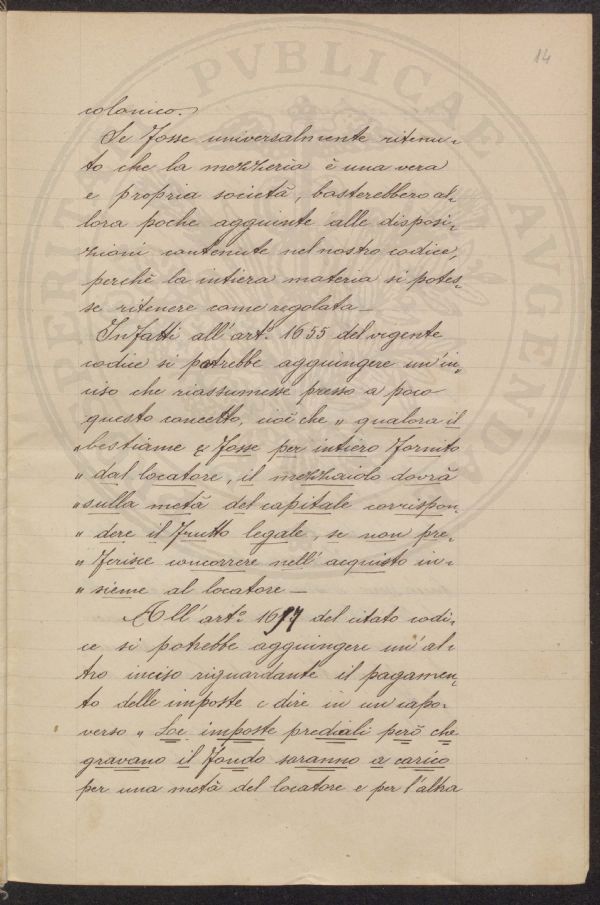 14
colonico.
Se fosse universalmente ritenu-
to che la mezzeria è una vera
e propria società, basterebbero al-
lora poche aggiunte alle disposi-
zioni contenute nel nostro codice,
perchè la intiera materia si potes-
se ritenere come regolata_
Infatti all'art.º 1655 del vigente
codice si potrebbe aggiungere un'in-
ciso che riassumesse presso a poco
questo concetto, cioè che „ qualora il
„ bestiame fosse per intiero fornito
„ dal locatore, il mezzaiolo dovrà
„ sulla metà del capitale corrispon-
„ dere il frutto legale, se non pre-
„ ferisce concorrere nell'acquisto in-
„ sieme al locatore_
All'art.º 1657 del citato codi-
ce si potrebbe aggiungere un'al-
tro inciso riguardante il pagamen-
to delle imposte e dire in un capo-
verso „ Le imposte prediali però che
gravano il fondo saranno a carico
per una metà del locatore e per l'altra
PVBLICAE AVGENDAE